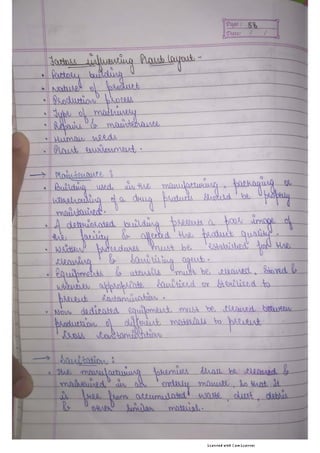 Page: 58
Date: / /
Factors influencing Plant layout -
• Factory building
• Nature of product
• Production process
• Type of machinery
• Repairs & maintenance
• Human needs
• Plant environment.
→ Maintenance :
• Building used in the manufacturing, packaging or
warehousing of a drug products should be properly
maintained.
• A deteriorated building presents a poor image of
the facility & affected the product quality.
• Written procedures must be established for the
cleaning & sanitizing agent.
• Equipments & utensils must be cleaned, stored &
wherever appropriate sanitized or sterilized to
prevent contamination.
• Non dedicated equipment must be cleaned between
production of different materials to prevent
cross contamination
→ Sanitation :
• The manufacturing premises shall be cleaned &
maintained in an orderly manner, so that it
is free from accumulated waste, dust, debris
& other similar material.
Scanned with CamScanner